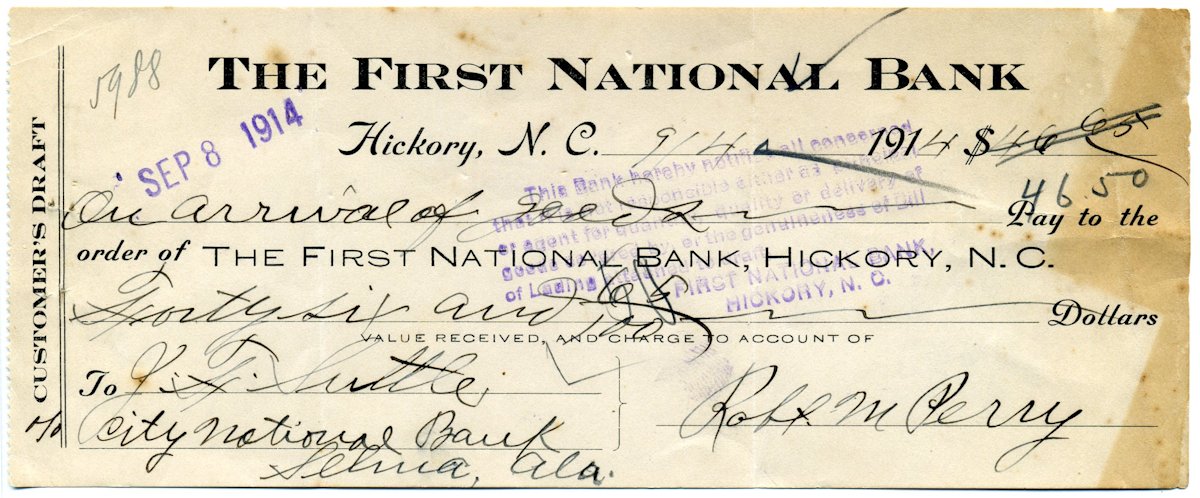 5988
THE FIRST NATIONAL BANK
SEP 8 1914
Hickory, N. C. 9/4 1914 $46 65
46.50
On arrival of Pay to the
order of THE FIRST NATIONAL BANK, HICKORY, N. C.
Forty six and 65/100 Dollars
VALUE RECEIVED, AND CHARGE TO ACCOUNT OF
To J. F. Suttle,
City National Bank
Selma, Ala.
Robt. M Perry
CUSTOMER'S DRAFT
This Bank hereby notifies all concerned
that it is not responsible either as principal
or agent for quantity, quality or delivery of
goods covered by, or the genuineness of Bill
of Lading
FIRST NATIONAL BANK,
HICKORY, N. C.